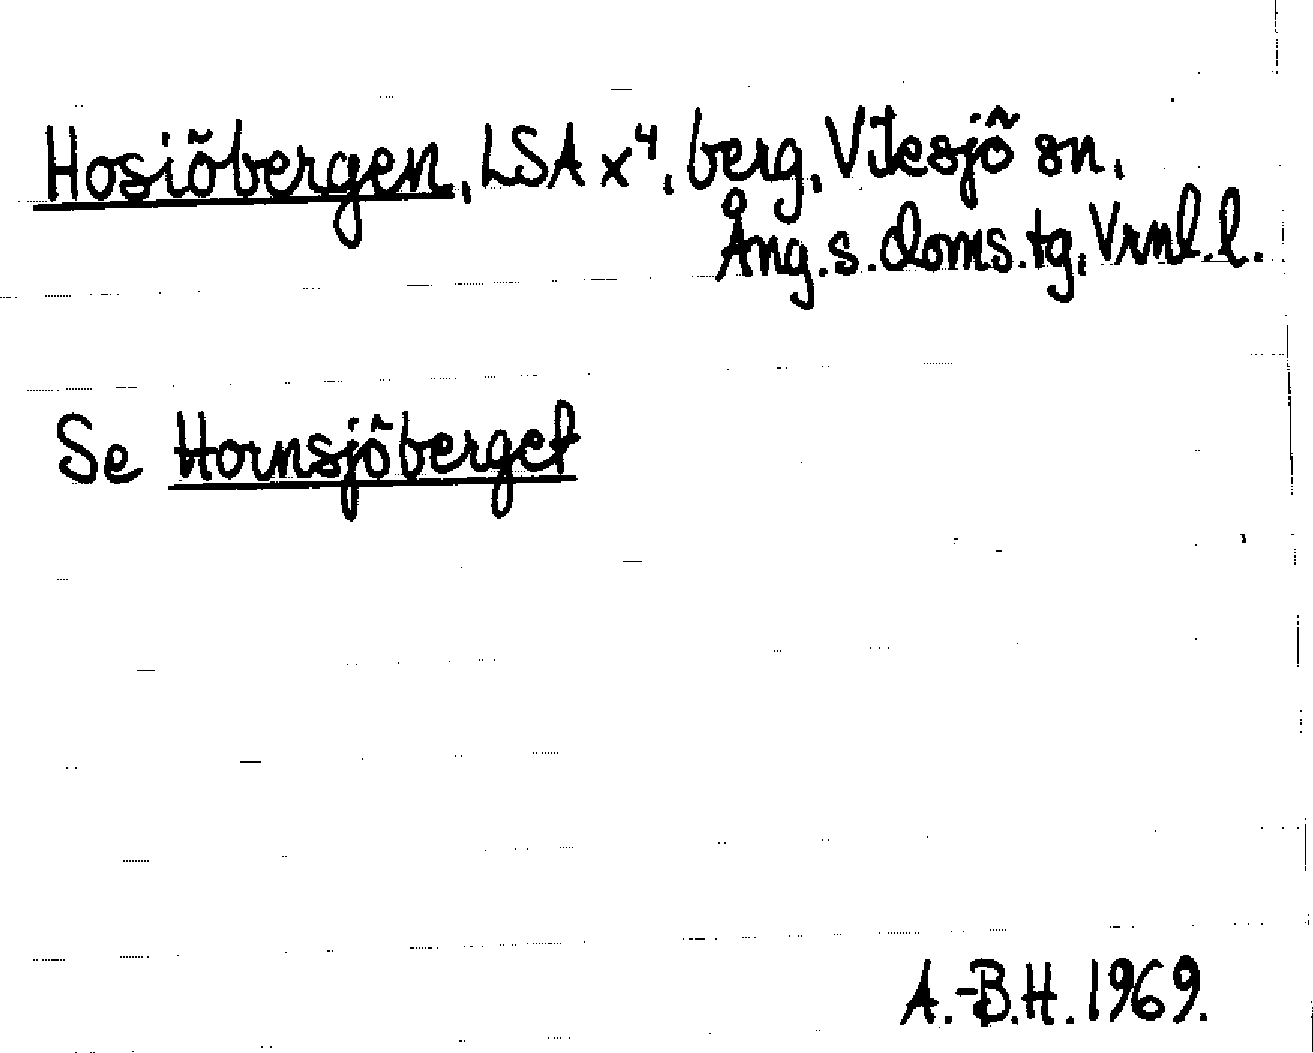 Hosiöbergen, LSA x⁴, berg, Vitesjö sn,
Ång.s.doms.tg, Vrml.l.
Se Hornsjöberget
A.-B.H. 1969.